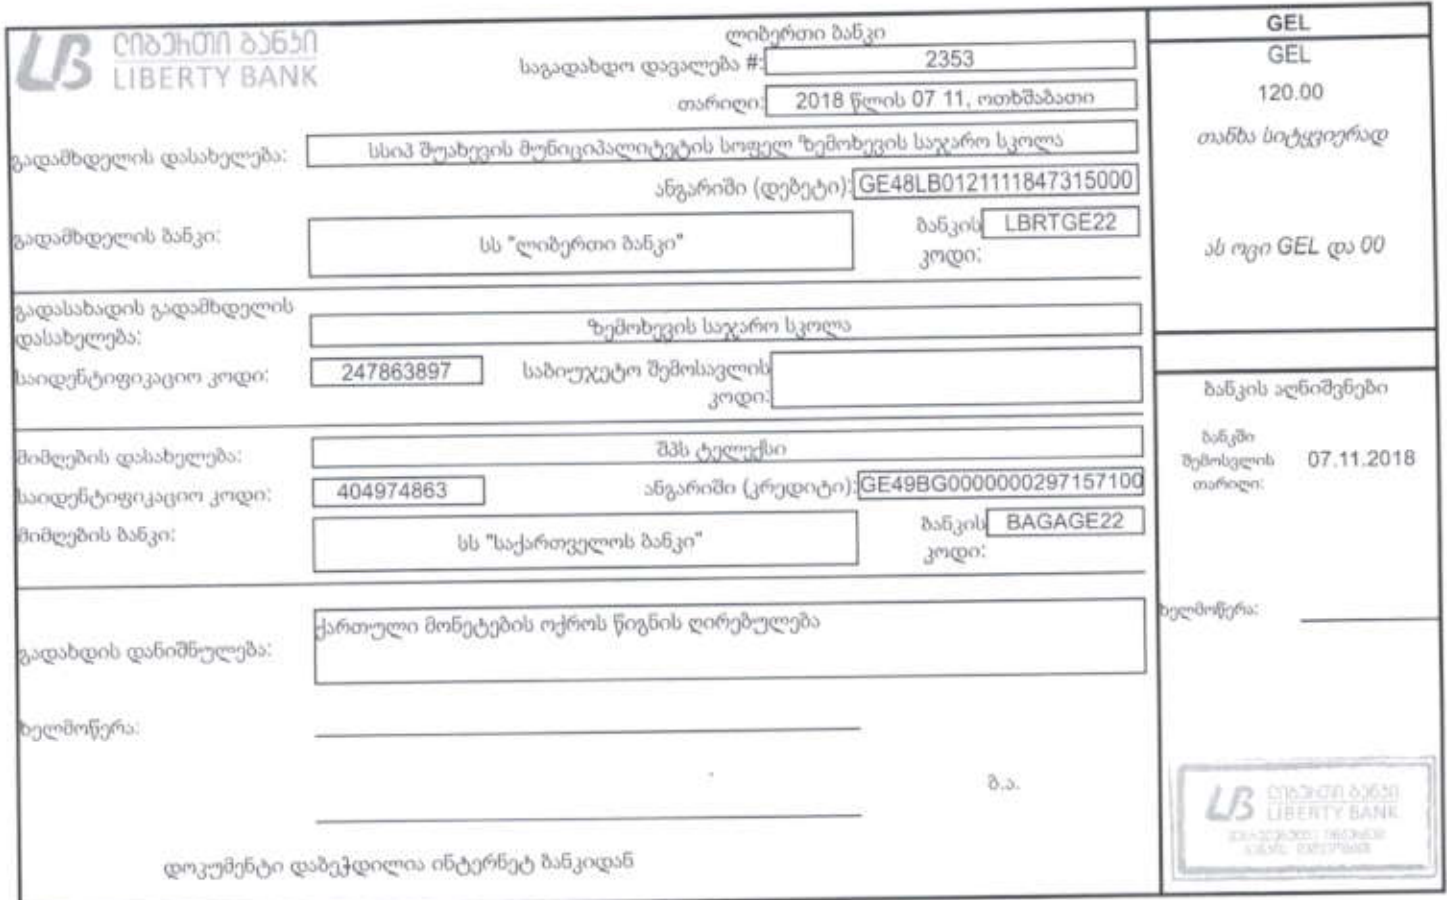 ლიბერთი ბანკი
LIBERTY BANK
ლიბერთი ბანკი
საგადახდო დავალება #: 2353
თარიღი: 2018 წლის 07 11, ოთხშაბათი
გადამხდელის დასახელება: სსიპ შუახევის მუნიციპალიტეტის სოფელ ზემოხევის საჯარო სკოლა
ანგარიში (დებეტი): GE48LB0121111847315000
გადამხდელის ბანკი: სს "ლიბერთი ბანკი" ბანკის კოდი: LBRTGE22
გადასახადის გადამხდელის
დასახელება: ზემოხევის საჯარო სკოლა
საიდენტიფიკაციო კოდი: 247863897 საბიუჯეტო შემოსავლის
კოდი:
მიმღების დასახელება: შპს ტელექსი
საიდენტიფიკაციო კოდი: 404974863 ანგარიში (კრედიტი): GE49BG0000000297157100
მიმღების ბანკი: სს "საქართველოს ბანკი" ბანკის კოდი: BAGAGE22
გადახდის დანიშნულება: ქართული მონეტების ოქროს წიგნის ღირებულება
ხელმოწერა:
ბ.ა.
დოკუმენტი დაბეჭდილია ინტერნეტ ბანკიდან
GEL
GEL
120.00
თანხა სიტყვიერად
ას ოცი GEL და 00
ბანკის აღნიშვნები
ბანკში
შემოსვლის 07.11.2018
თარიღი:
ხელმოწერა:
ლიბერთი ბანკი
LIBERTY BANK